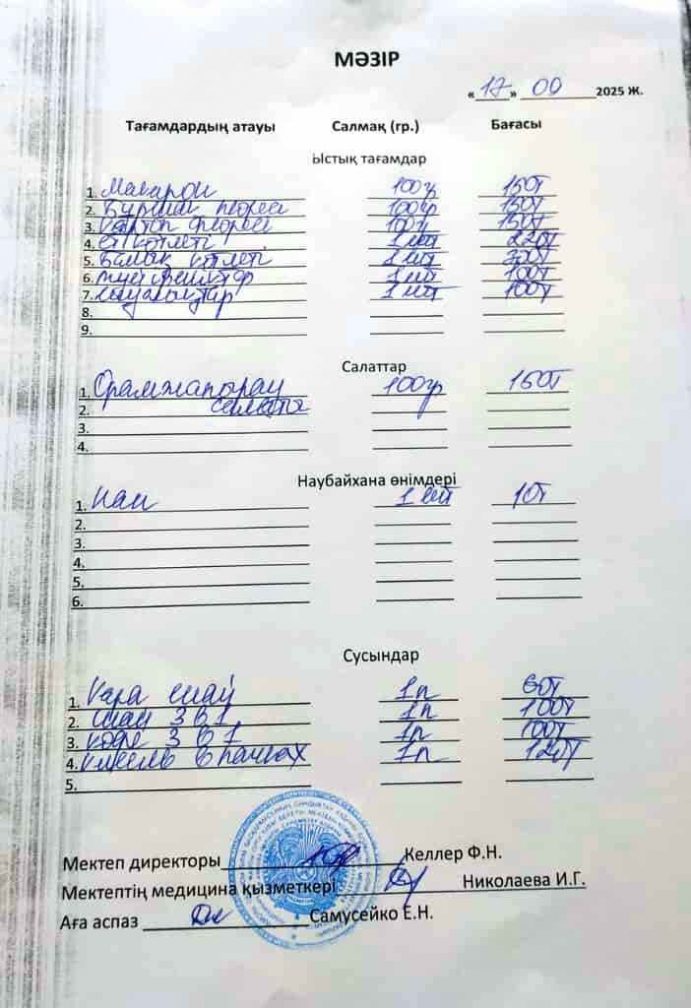 МӘЗІР
«17» 09 2025 ж.
Тағамдардың атауы Салмақ (гр.) Бағасы
Ыстық тағамдар
1. Макарон 100гр 150т
2. Күріш пюресі 100гр 150т
3. Картоп пюресі 100гр 150т
4. Ет котлеті 1 шт 220т
5. Балық котлеті 1 шт 200т
6. 1 шт 100т
7. 1 шт 100т
8.
9.
Салаттар
1. Орамжапырақ 100гр 150т
2. салаты
3.
4.
Наубайхана өнімдері
1. Нан 1 шт 10т
2.
3.
4.
5.
6.
Сусындар
1. Қара шай 1п 60т
2. шай 3 в 1 1п 100т
3. кофе 3 в 1 1п 100т
4. кисель в пачках 1п 120т
5.
Мектеп директоры Келлер Ф.Н.
Мектептің медицина қызметкері Николаева И.Г.
Аға аспаз Самусейко Е.Н.